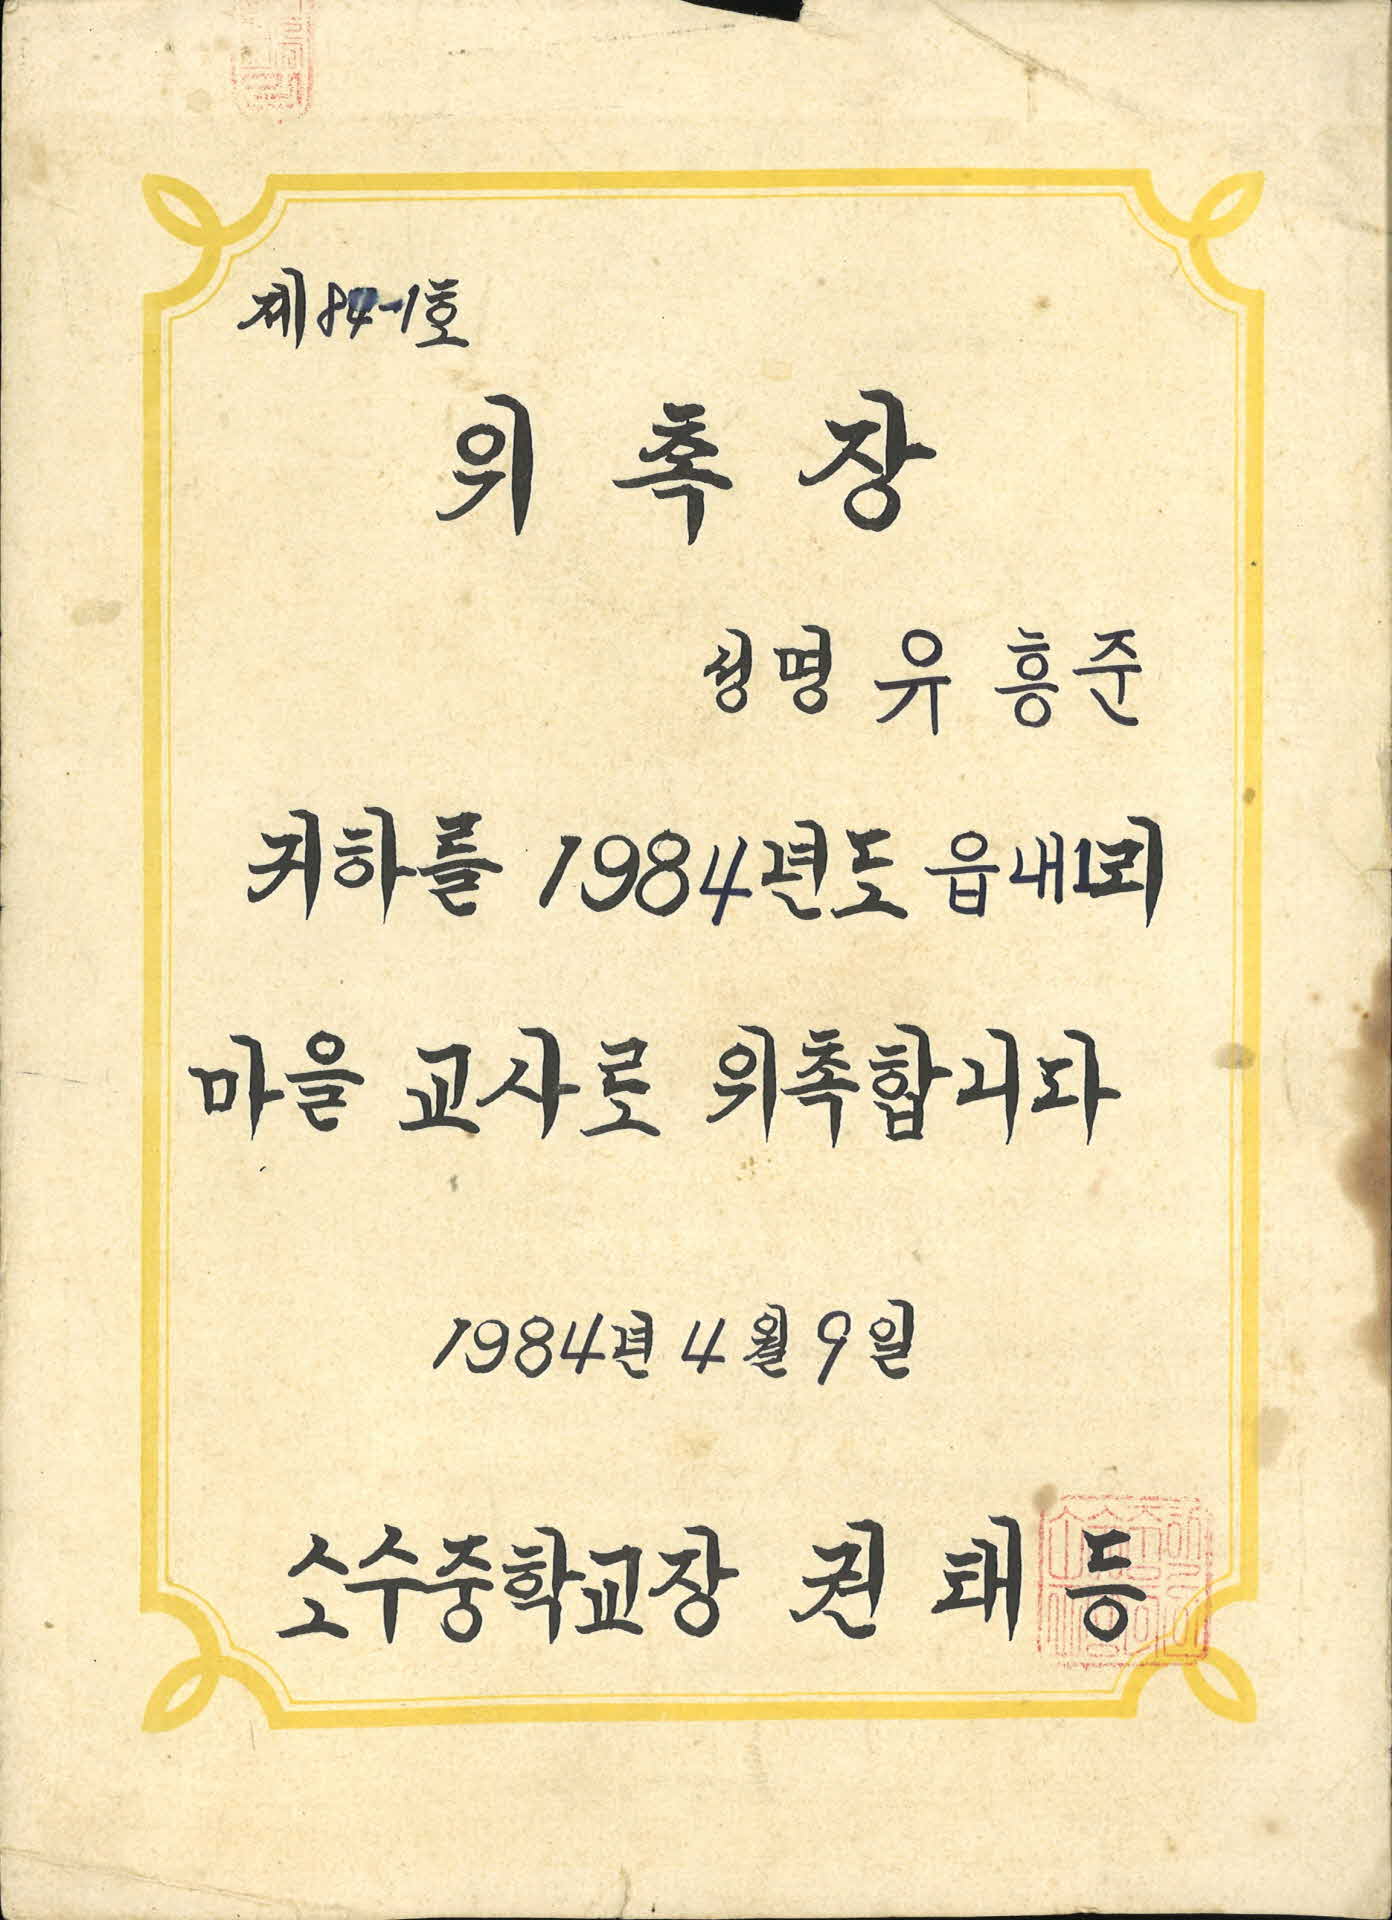 제84-1호
위촉장
성명 유흥준
귀하를 1984년도 읍내1리
마을 교사로 위촉합니다
1984년 4월 9일
소수중학교장 권태등